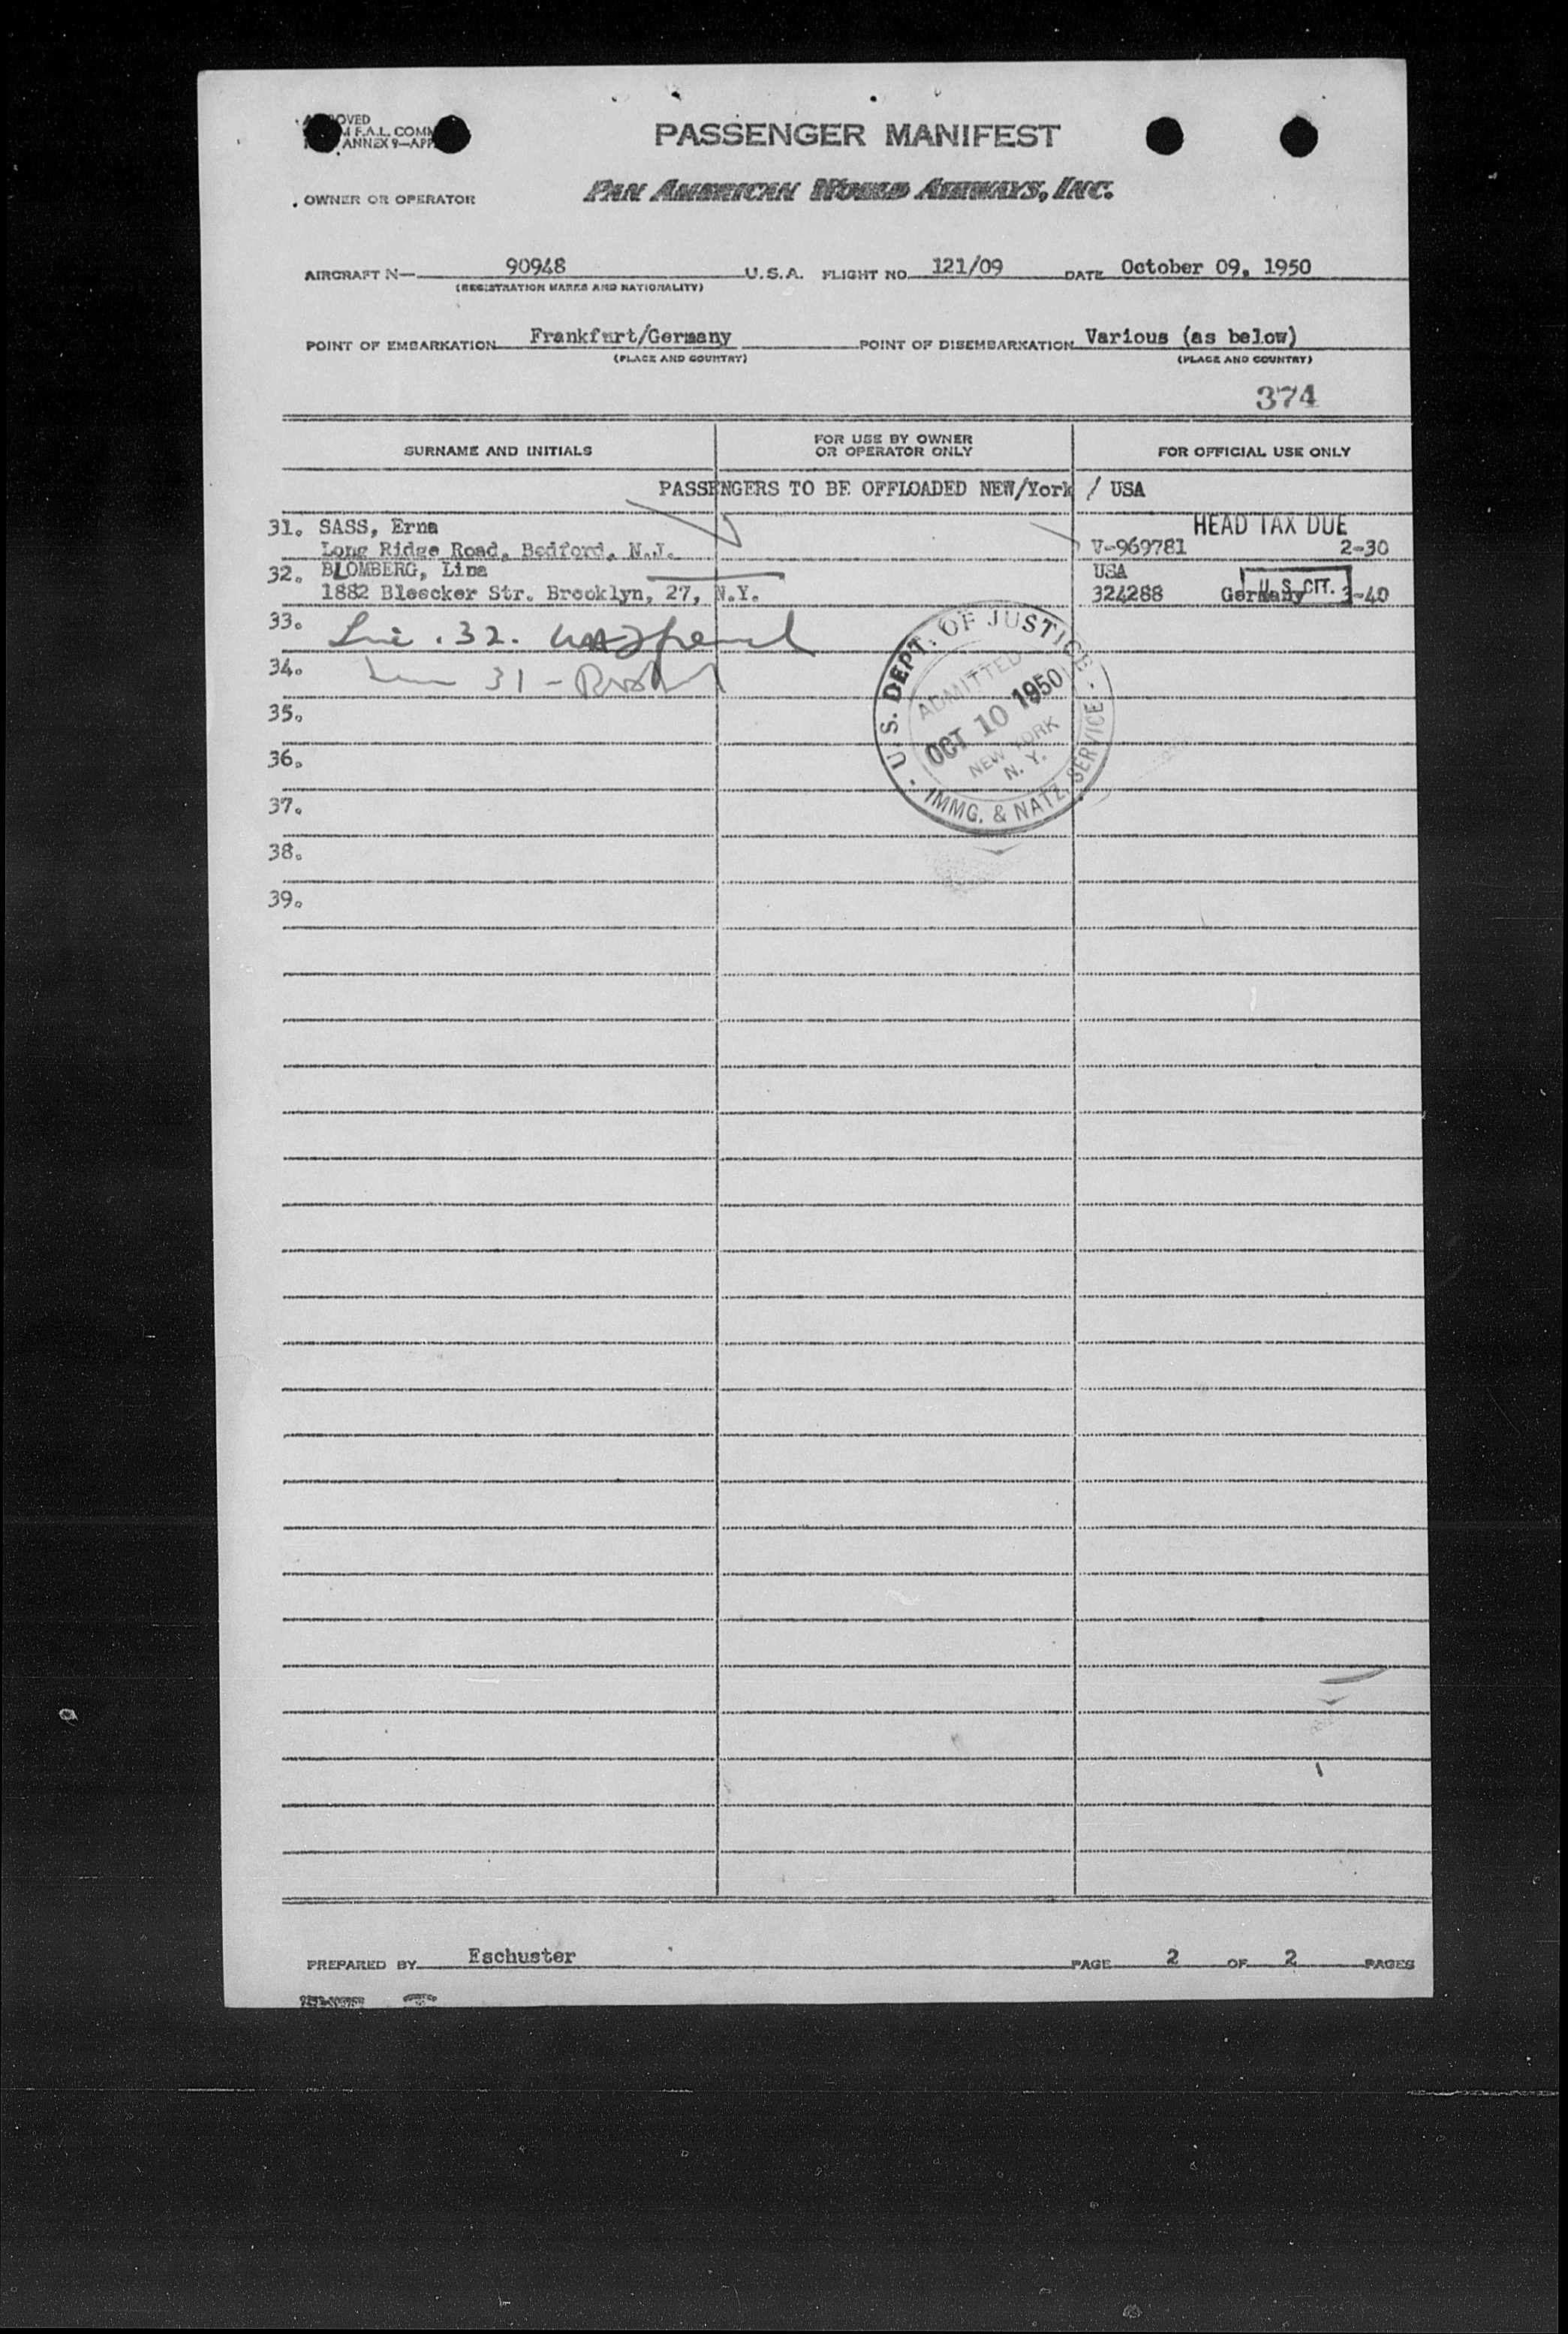 PASSENGER MANIFEST
F.A.L.
ANNEX 9—APP
OWNER OR OPERATOR PAN AMERICAN WORLD AIRWAYS, INC.
AIRCRAFT N— 90948 U.S.A. FLIGHT NO. 121/09 DATE October 09, 1950
(REGISTRATION MARKS AND NATIONALITY)
POINT OF EMBARKATION Frankfurt/Germany POINT OF DISEMBARKATION Various (as below)
(PLACE AND COUNTRY) (PLACE AND COUNTRY)
374
SURNAME AND INITIALS FOR USE BY OWNER OR OPERATOR ONLY FOR OFFICIAL USE ONLY
PASSENGERS TO BE OFFLOADED NEW/York / USA
31. SASS, Erna HEAD TAX DUE
Long Ridge Road, Bedford, N.J. V-969781 2-30
32. BLOMBERG, Lina USA
1882 Bleecker Str. Brooklyn, 27, N.Y. 324288 Germany U.S. CIT. 3-40
33. 32.
34. 31 -
35.
36.
37.
38.
39.
U.S. DEPT. OF JUSTICE
ADMITTED
OCT 10 1950
NEW YORK
N. Y.
IMMG. & NATZ. SERVICE
PREPARED BY Eschuster PAGE 2 OF 2 PAGES